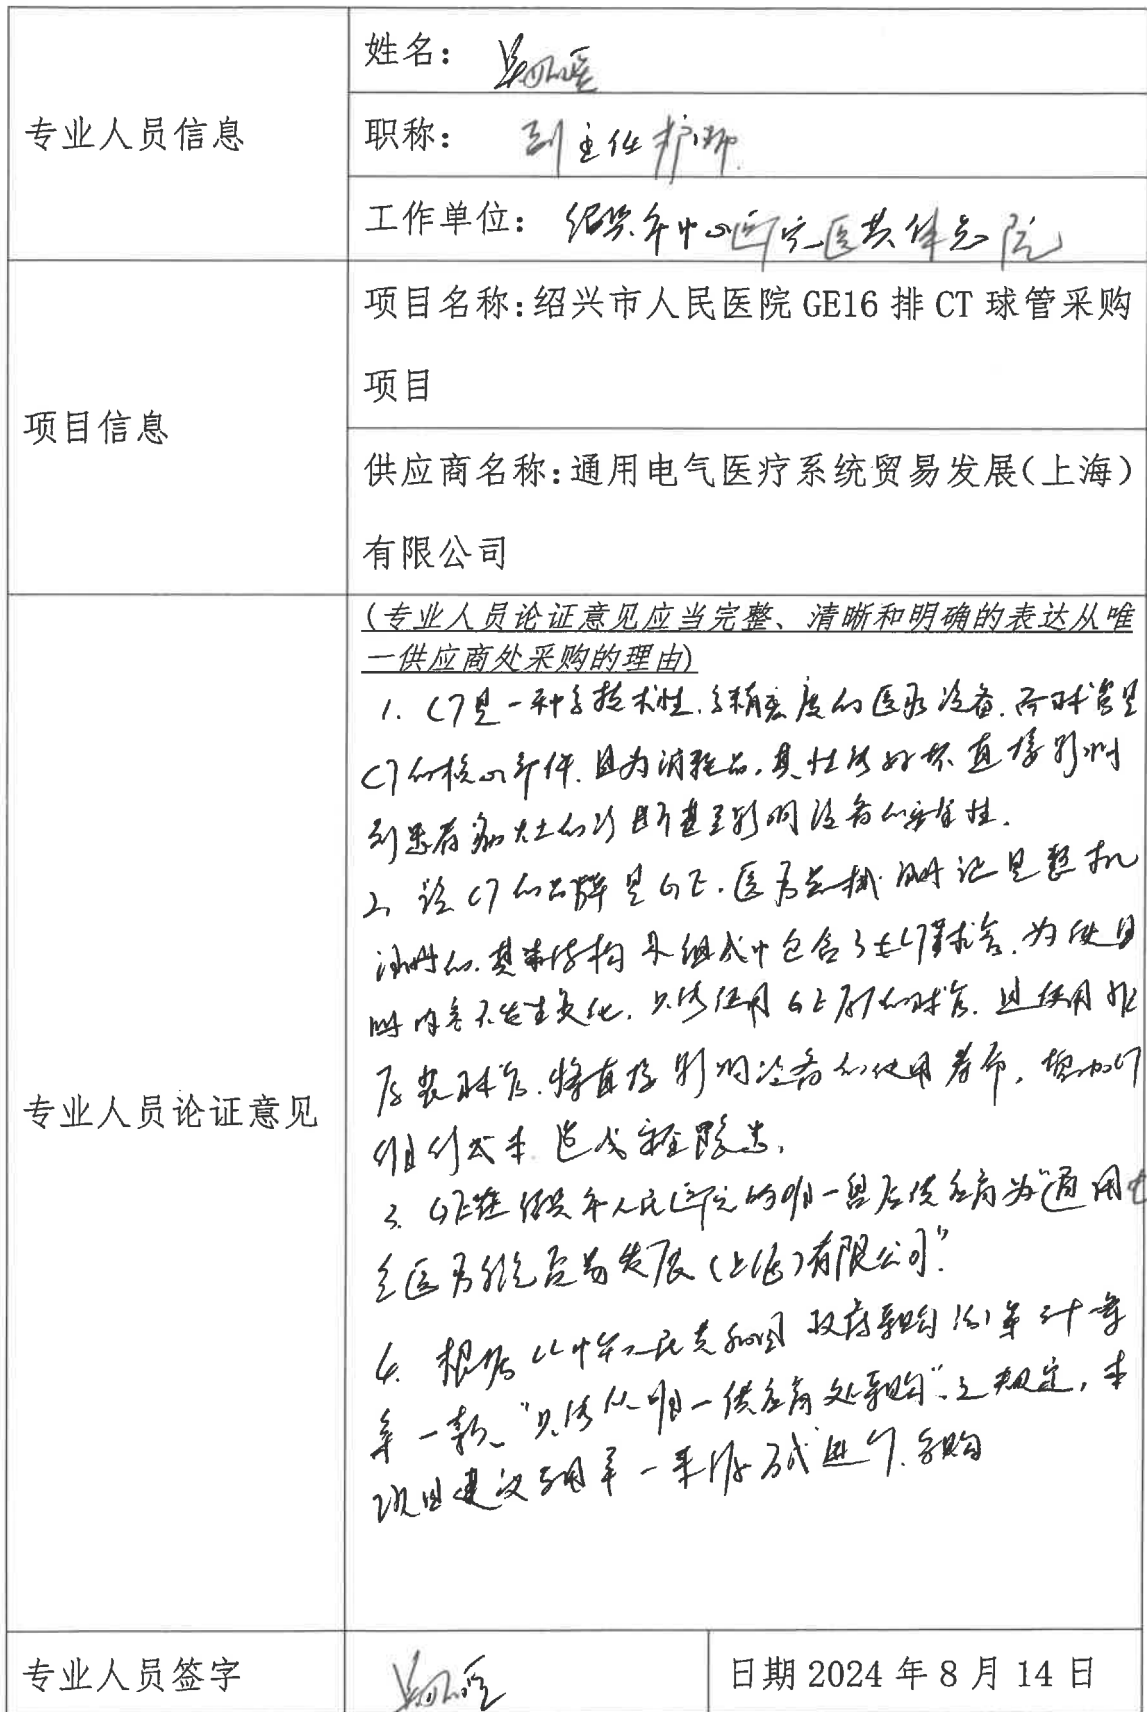 专业人员信息
姓名：
职称： 副主任护师
工作单位： 绍兴市中心医院医共体总院
项目信息
项目名称：绍兴市人民医院 GE16 排 CT 球管采购
项目
供应商名称：通用电气医疗系统贸易发展（上海）
有限公司
专业人员论证意见
(专业人员论证意见应当完整、清晰和明确的表达从唯
一供应商处采购的理由)
1. CT是一种高技术性、高精密度的医疗设备，而球管是
CT的核心部件，且为消耗品，其性能好坏直接影响
到患者病灶的诊断甚至影响设备的安全性。
2、该CT的品牌是GE，医疗器械注册证是整机
注册的，其结构及组成中包含了CT球管，为使注
册内容不发生变化，只能使用GE的球管，使用非
原装球管，将直接影响设备的使用寿命，增加
成本 造成安全隐患。
3. GE在绍兴市人民医院的唯一售后供应商为“通用电
气医疗系统贸易发展（上海）有限公司”。
4. 根据《中华人民共和国政府采购法》第三十一条
第一款、“只能从唯一供应商处采购”之规定，本
项目建议采用单一来源方式进行采购
专业人员签字
日期 2024 年 8 月 14 日